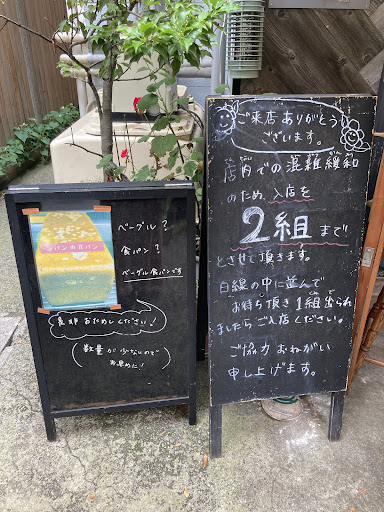 ベーグル?
食パン?
ベーグル食パンです
是非 おためしください!
数量が少ないので
お早めに!
ご来店ありがとう
ございます。
店内での混雑緩和
てん ない
こんざつかんわ
のため、入店を
2組まで
くみ
とさせて頂きます。
白線の中に並んで
お待ち頂き1組出られ
ましたらご入店ください。
ご協力おねがい
申し上げます。